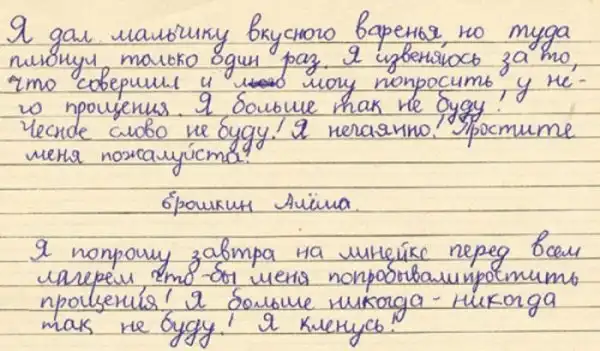 Я дал мальчику вкусного варенья, но туда
плюнул только один раз. Я извеняюсь за то,
что совершил и могу попросить у не-
го прощения. Я больше так не буду!
Чесное слово не буду! Я нечаянно! Простите
меня пожалуйста!
Брошкин Алёша.
Я попрошу завтра на линейке перед всем
лагерем, что-бы меня попробывали простить
прощения! Я больше никогда-никогда
так не буду! Я кленусь!